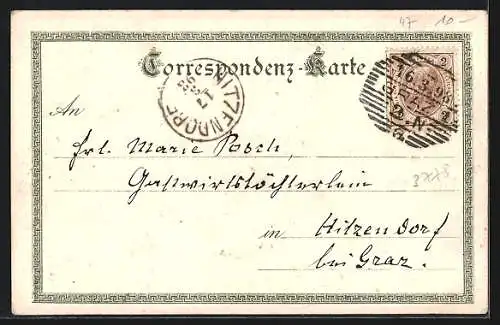 47 10-
Correspondenz-Karte
2
HITZENDORF
17
98
16.3.98
2.N.
An
Frl. Marie Posch,
Gastwirtstöchterlein
3778
in Hitzendorf
bei Graz.